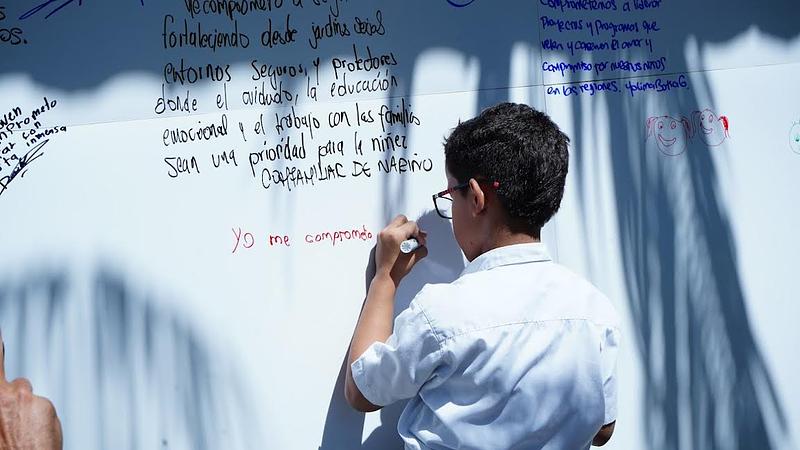 os.
me comprometo a
fortaleciendo desde jardines sociales
entornos seguros, y protectores
donde el cuidado, la educación
emocional y el trabajo con las familias
sean una prioridad para la niñez
COMFAMILIAR DE NARIÑO
comprometemos a liderar
Proyectos y programas que
velen y el amor y
compromiso por nuestros niños
en las regiones.
mprometo
con
inmensa
Yo me comprometo